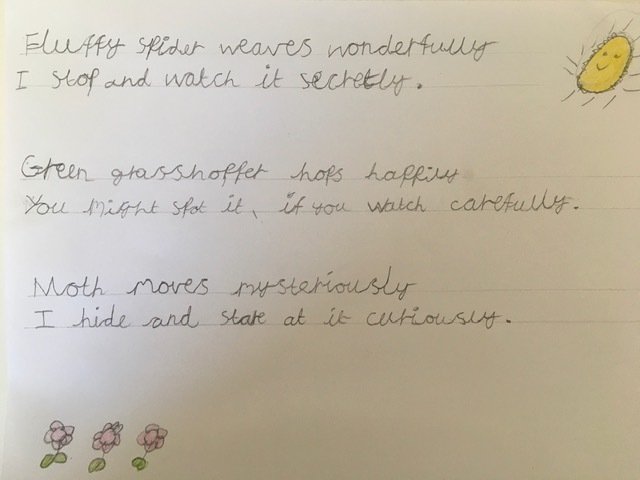 Fluffy spider weaves wonderfully
I stop and watch it secretly.
Green grasshopper hops happily
You might spot it, if you watch carefully.
Moth moves mysteriously
I hide and stare at it curiously.